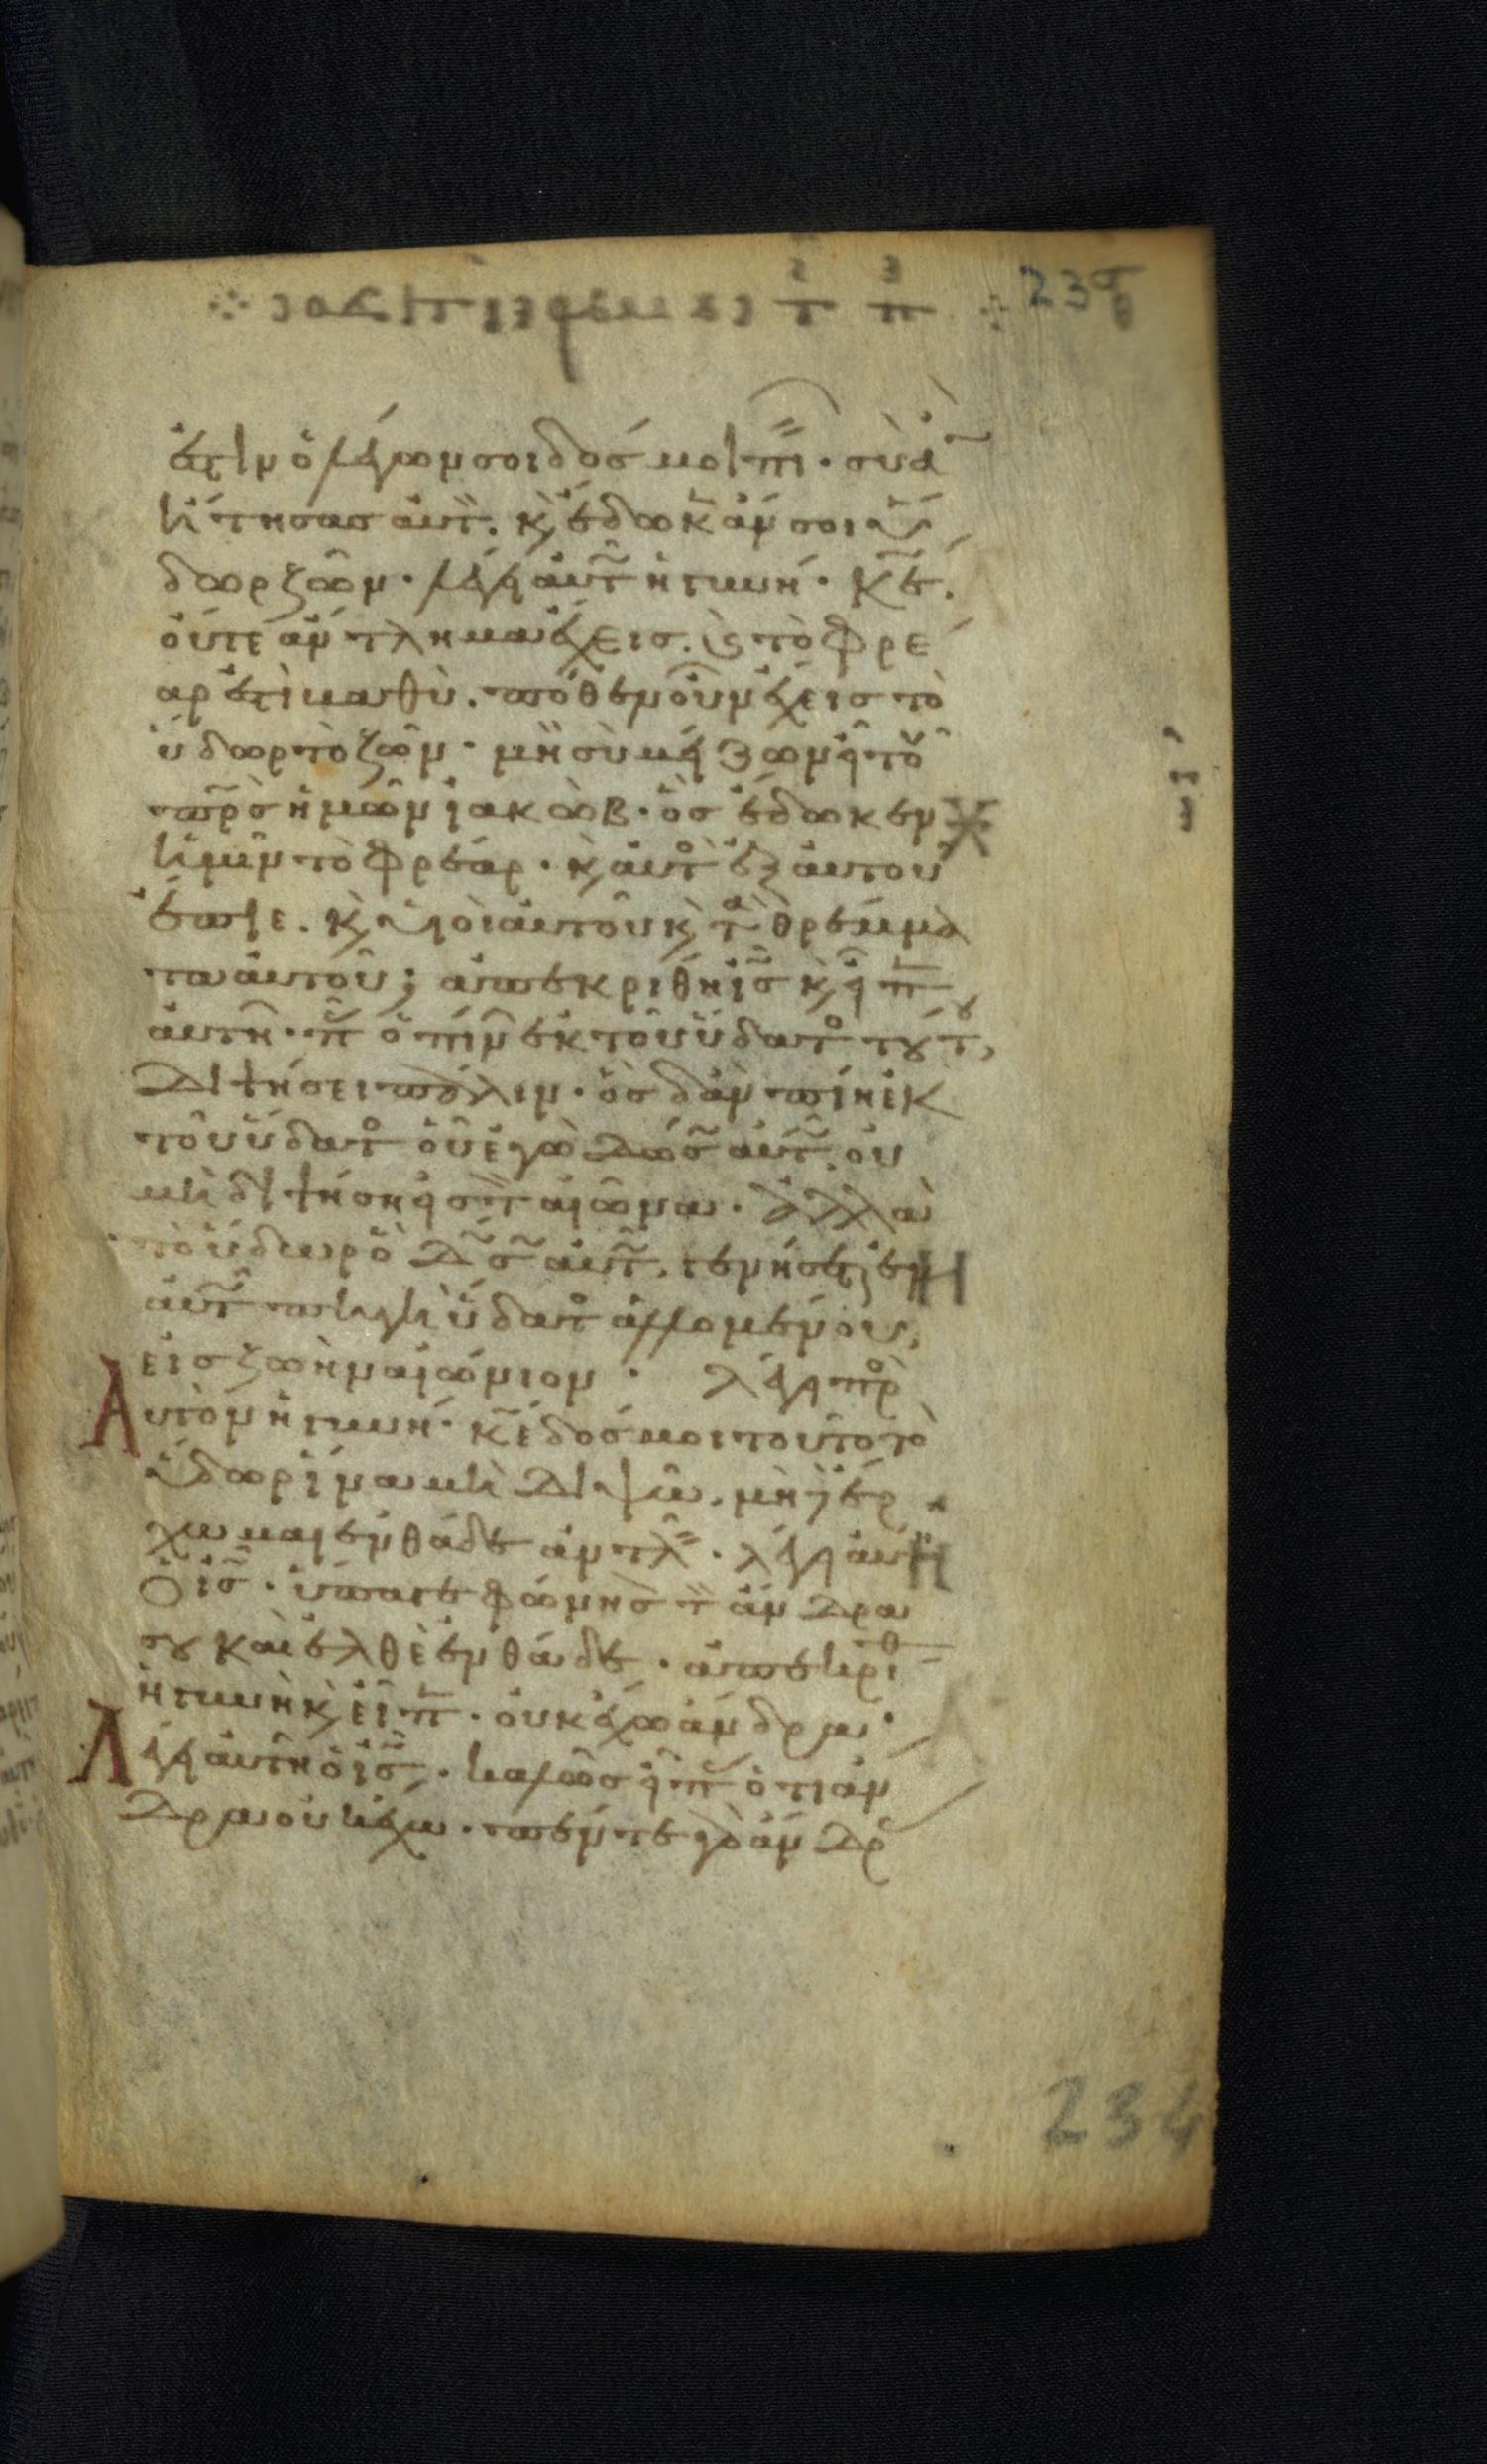 ἐστὶν ὁ λέγων σοι δός μοι πι· σὺ ἂ
ἤτησας αὐτ. κ ἔδωκ ἄν σοι ὕ
δωρ ζῶν· λέγει αὐτ ἡ γυνή· κε.
οὔτε ἄντλημα ἔχεις. κ τὸ φρέ
αρ ἐστὶ βαθύ. πόθεν οὖν ἔχεις τὸ
ὕδωρ τὸ ζῶν· μὴ σὺ μείζων εἶ τοῦ
πρς ἡμῶν ἰακώβ· ὃς ἔδωκεν
ἡμῖν τὸ φρέαρ· κ αὐτὸ ἐξ αὐτοῦ
ἔπιε. κ οἱ υἱοι αὐτοῦ κ τὰ θρέμμα
τα αὐτοῦ; ἀπεκρίθη ις κ εἶπ
αὐτῆ· π ὁ πίν ἐκ τοῦ ὕδατο τούτ,
διψήσει πάλιν· ὃς δ' ἂν πίη ἐκ
τοῦ ὕδατο οὗ ἐγὼ δώσ αὐτ. οὐ
μὴ διψήση εἰς τ αἰῶνα· ἀλλὰ
τὸ ὕδωρ ὃ δσ αὐτ, γενήσετ ἐν
αὐτ πηγὴ ὕδατο ἁλλομένου,
εἰς ζωὴν αἰώνιον· λέγει πρὸ
Αυτὸν ἡ γυνή· κε δός μοι τοῦτο τὸ
ὕδωρ ἵνα μὴ διψῶ. μὴ δὲ ἔρ
χωμαι ἐνθάδε ἀντλ· λέγει αὐτῆ
ὁ ις· ὕπαγε φώνησ τ ἄνδρα
σου καὶ ἐλθὲ ἐνθάδε· ἀπεκρίθ
ἡ γυνὴ κ εἶπ· οὐκ ἔχω ἄνδρα·
Λέγει αὐτῆ ὁ ις· καλῶς εἶπ ὅτι ἄν
δρα οὐκ ἔχω· πέντε γὰρ ἄνδρ
234